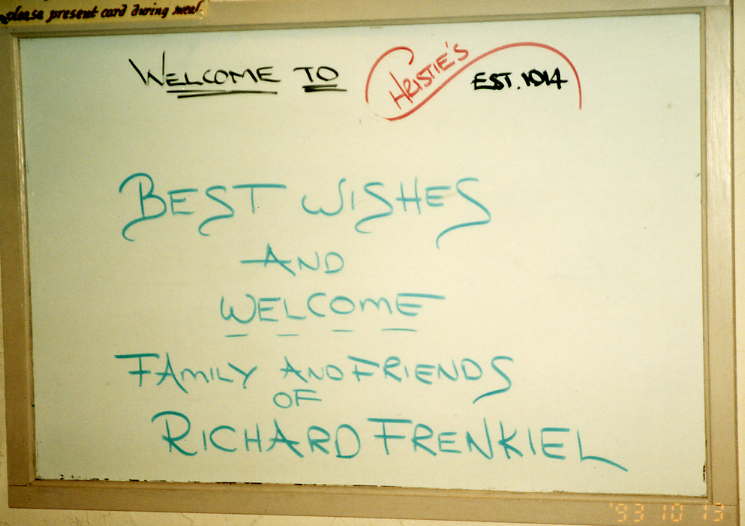 please present card during meal.
WELCOME TO CHRISTIE'S EST. 1914
BEST WISHES
AND
WELCOME
FAMILY AND FRIENDS
OF
RICHARD FRENKIEL
'93 10 13